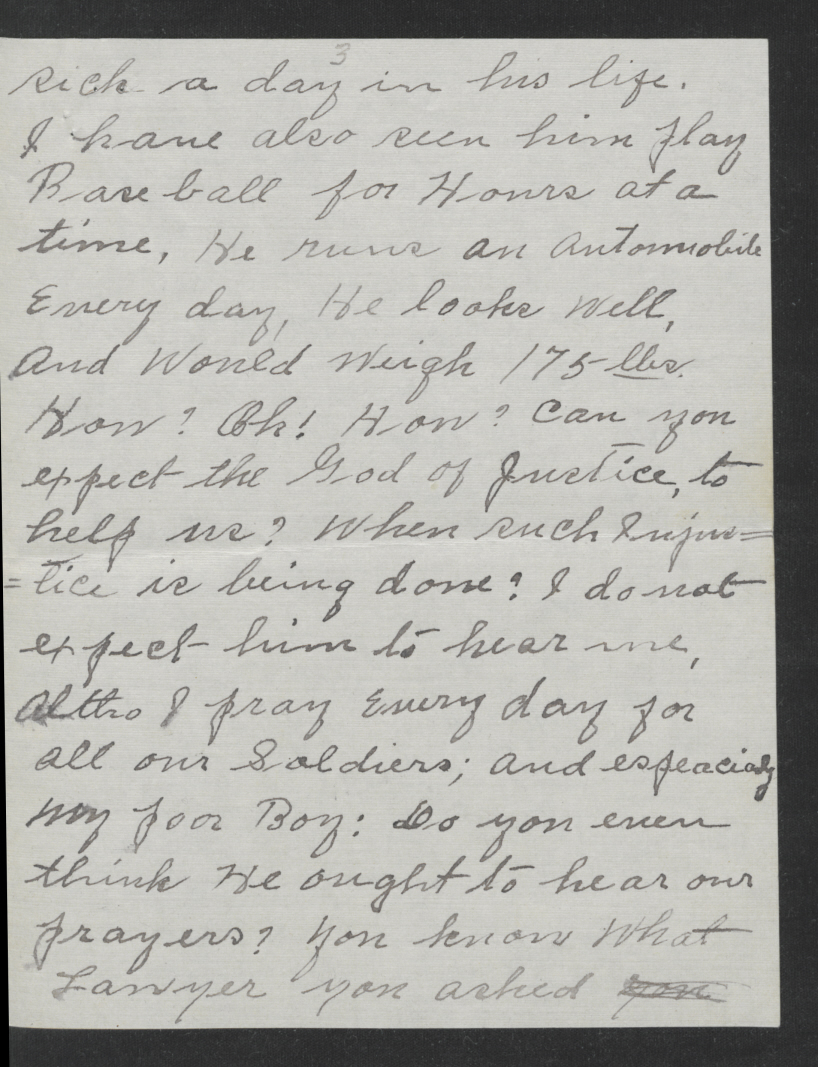 3
sick a day in his life.
I have also seen him play
Base ball for Hours at a
time, He runs an Automobile
Every day, He looks Well,
And Would Weigh 175 lbs.
How? Oh! How? Can you
expect the God of Justice, to
help us? When such Injus=
=tice is being done? I do not
expect him to hear me,
Altho I pray Every day for
all our Soldiers; and espeacialy
My poor Boy: Do you even
think He ought to hear our
prayers? You know What
Lawyer you asked you